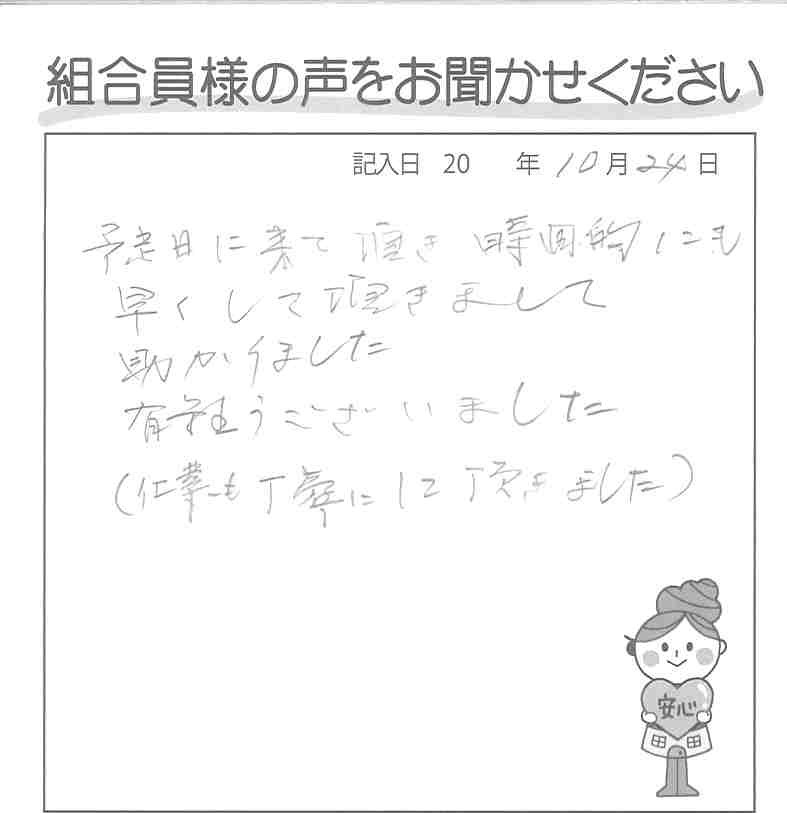 組合員様の声をお聞かせください
記入日 20 年 10月24日
予定日に来て頂き 時間的にも
早くして頂きまして
助かりました
有難うございました
(仕事も丁寧にして頂きました)
安心